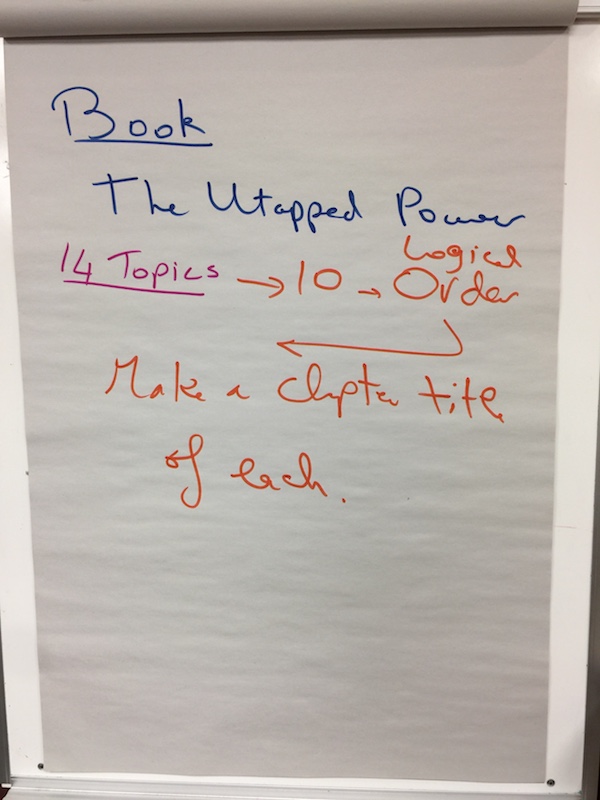 Book
The Utapped Power
14 Topics → 10 → Logical Order
Make a chapter title
of each.